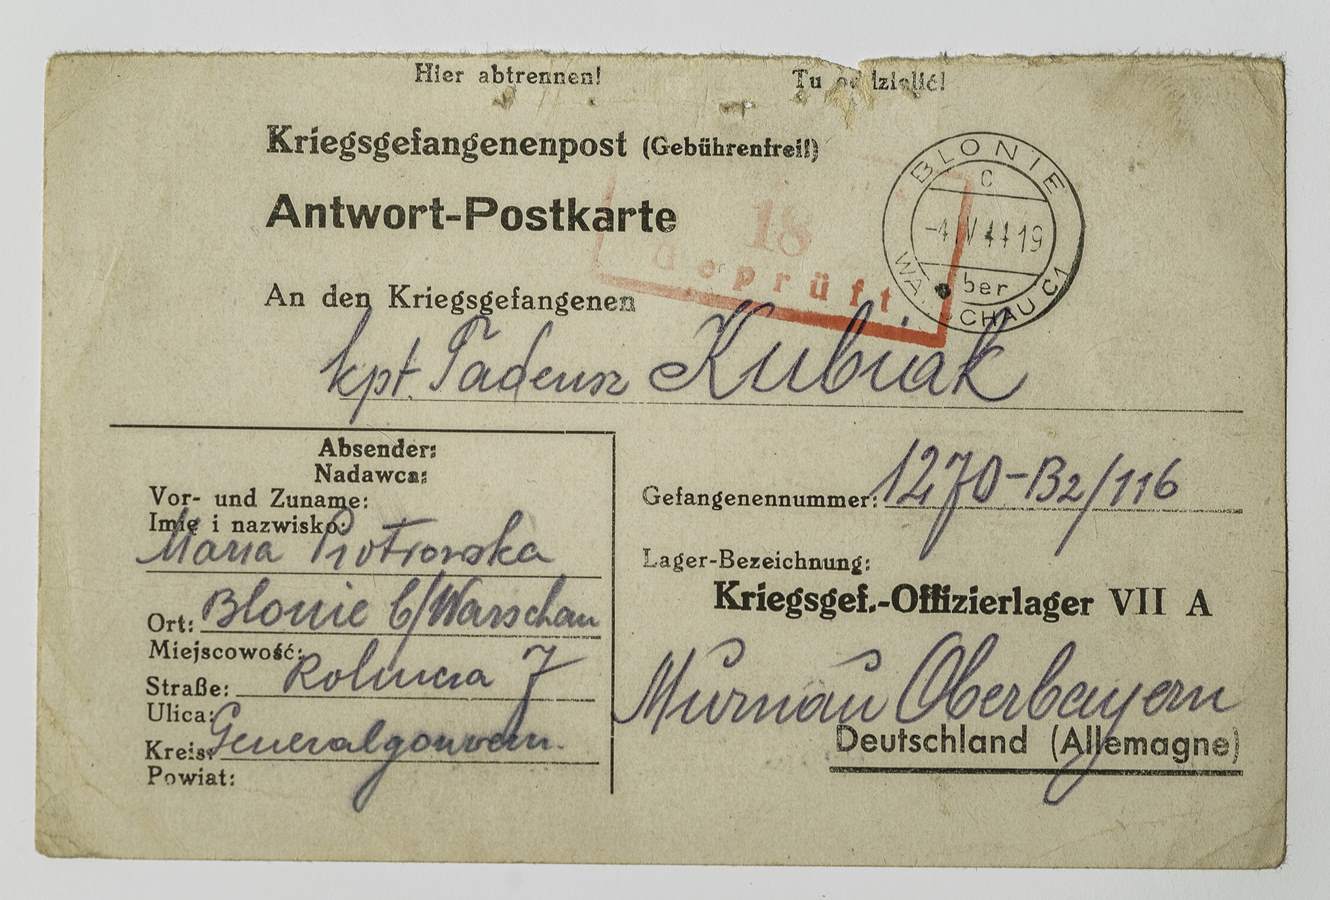 Hier abtrennen!
Tu
Kriegsgefangenenpost (Gebührenfrei!)
Antwort-Postkarte
BLONIE
C
-4.IV 44 19
über
WARSCHAU C1
18
Geprüft
An den Kriegsgefangenen
kpt. Tadeusz Kubiak
Absender:
Nadawca:
Vor- und Zuname:
Imię i nazwisko:
Maria Piotrowska
Ort: Blonie b/Warschau
Miejscowość:
Straße: Rolnicza 7
Ulica:
Kreis: Generalgouvern.
Powiat:
Gefangenennummer: 1270-B2/116
Lager-Bezeichnung:
Kriegsgef.-Offizierlager VII A
Murnau Oberbayern
Deutschland (Allemagne)